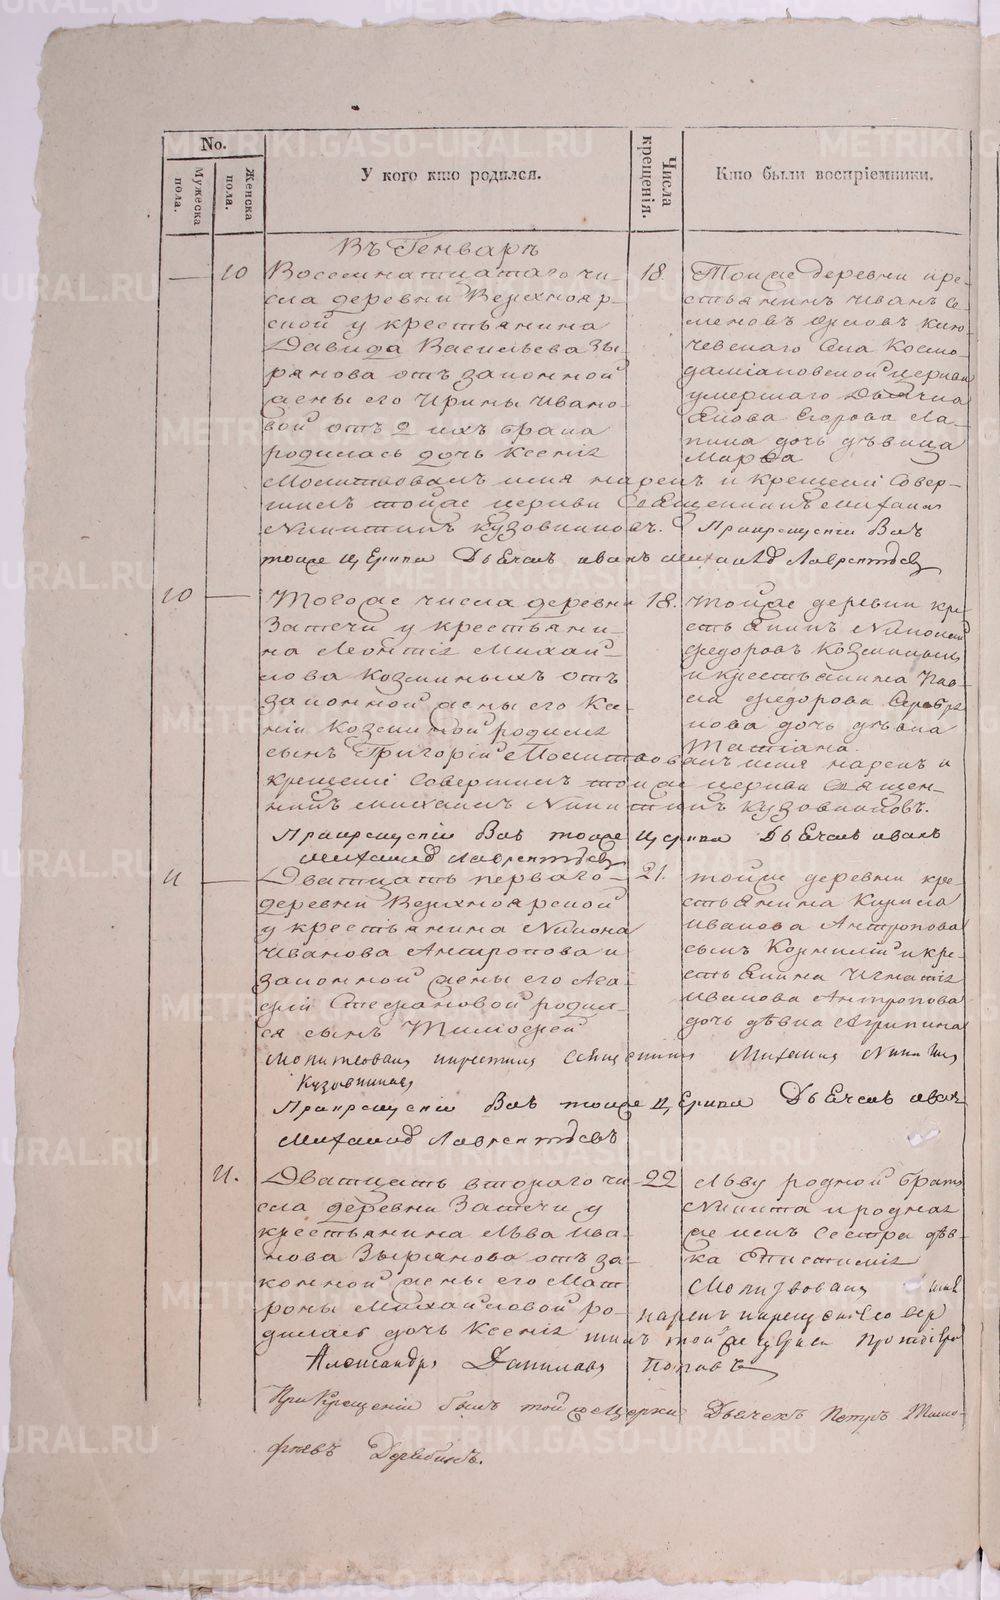 No.
Мужеска пола.
Женска пола.
У кого кто родился.
Числа крещенія.
Кто были воспріемники.
Въ Генварѣ
— 10
Восемнатцатаго чи-
сла деревни Верхнояр-
ской у крестьянина
Давида Васильева Зы-
рянова отъ законной
жены его Ирины Ивано-
вой отъ 2 ихъ брака
родилась дочь Ксенія
18.
Тойже деревни кре-
стьянинъ Иванъ Се-
меновъ Орловъ Клю-
чевскаго Села Космо-
даміановской церкви
умершаго Дьячка
Егорова Ла-
пина дочь дѣвица
Марѳа
Молитвовалъ имя нарекъ и крещеніе Совер-
шилъ тойже церкви Священникъ Михаилъ
Никитинъ Кузовниковъ. При крещеніи Былъ
тойже церкви Дьячекъ Иванъ Михайловъ Лаврентьевъ
10 —
Того же числа деревни
Затечи у крестьяни-
на Леонтія Михай-
лова Козминыхъ отъ
законной жены его Ксе-
ніи Козминой родился
сынъ Григорій Молитвовалъ имя нарекъ и
18.
Тойже деревни кре-
стьянинъ Николай
Федоровъ Козминыхъ
и крестьянина Пав-
ла Федорова Серебря-
кова дочь дѣвка
Татіана.
крещеніе Совершилъ тойже церкви Священ-
никъ Михаилъ Никитинъ Кузовниковъ.
При крещеніи Былъ тойже церкви Дьячекъ Иванъ
Михайловъ Лаврентьевъ
11 —
Дватцать перваго
деревни Верхноярской
у крестьянина Никона
Иванова Антропова и
законной жены его Ага-
фіи Стефановой родил-
ся сынъ Тимофей
21.
тойже деревни кре-
стьянина Кирила
Иванова Антропова
сынъ Корнилій и кре-
стьянина Игнатія
Иванова Антропова
дочь дѣвка Агрипина
Молитвовалъ и крестилъ Священникъ Михаилъ Никитинъ
Кузовниковъ
При крещеніи Былъ тойже церкви Дьячекъ Иванъ
Михайловъ Лаврентьевъ
11.
Дватцать втораго чи-
сла деревни Затечи у
крестьянина Льва Ива-
нова Зырянова отъ за-
конной жены его Мат
роны Михайловой ро-
дилась дочь Ксенія
22
Льву родной братъ
Никита и родная
же имъ Сестра дѣв-
ка Епистимія
Молитвовалъ имя
нарекъ и крещеніе совер
шилъ тойже церкви Протоіерей
Александръ Даниловъ Поповъ
При Крещеніи былъ тойже Церкви Дьячекъ Петръ Тимо-
феевъ Дерябинъ.